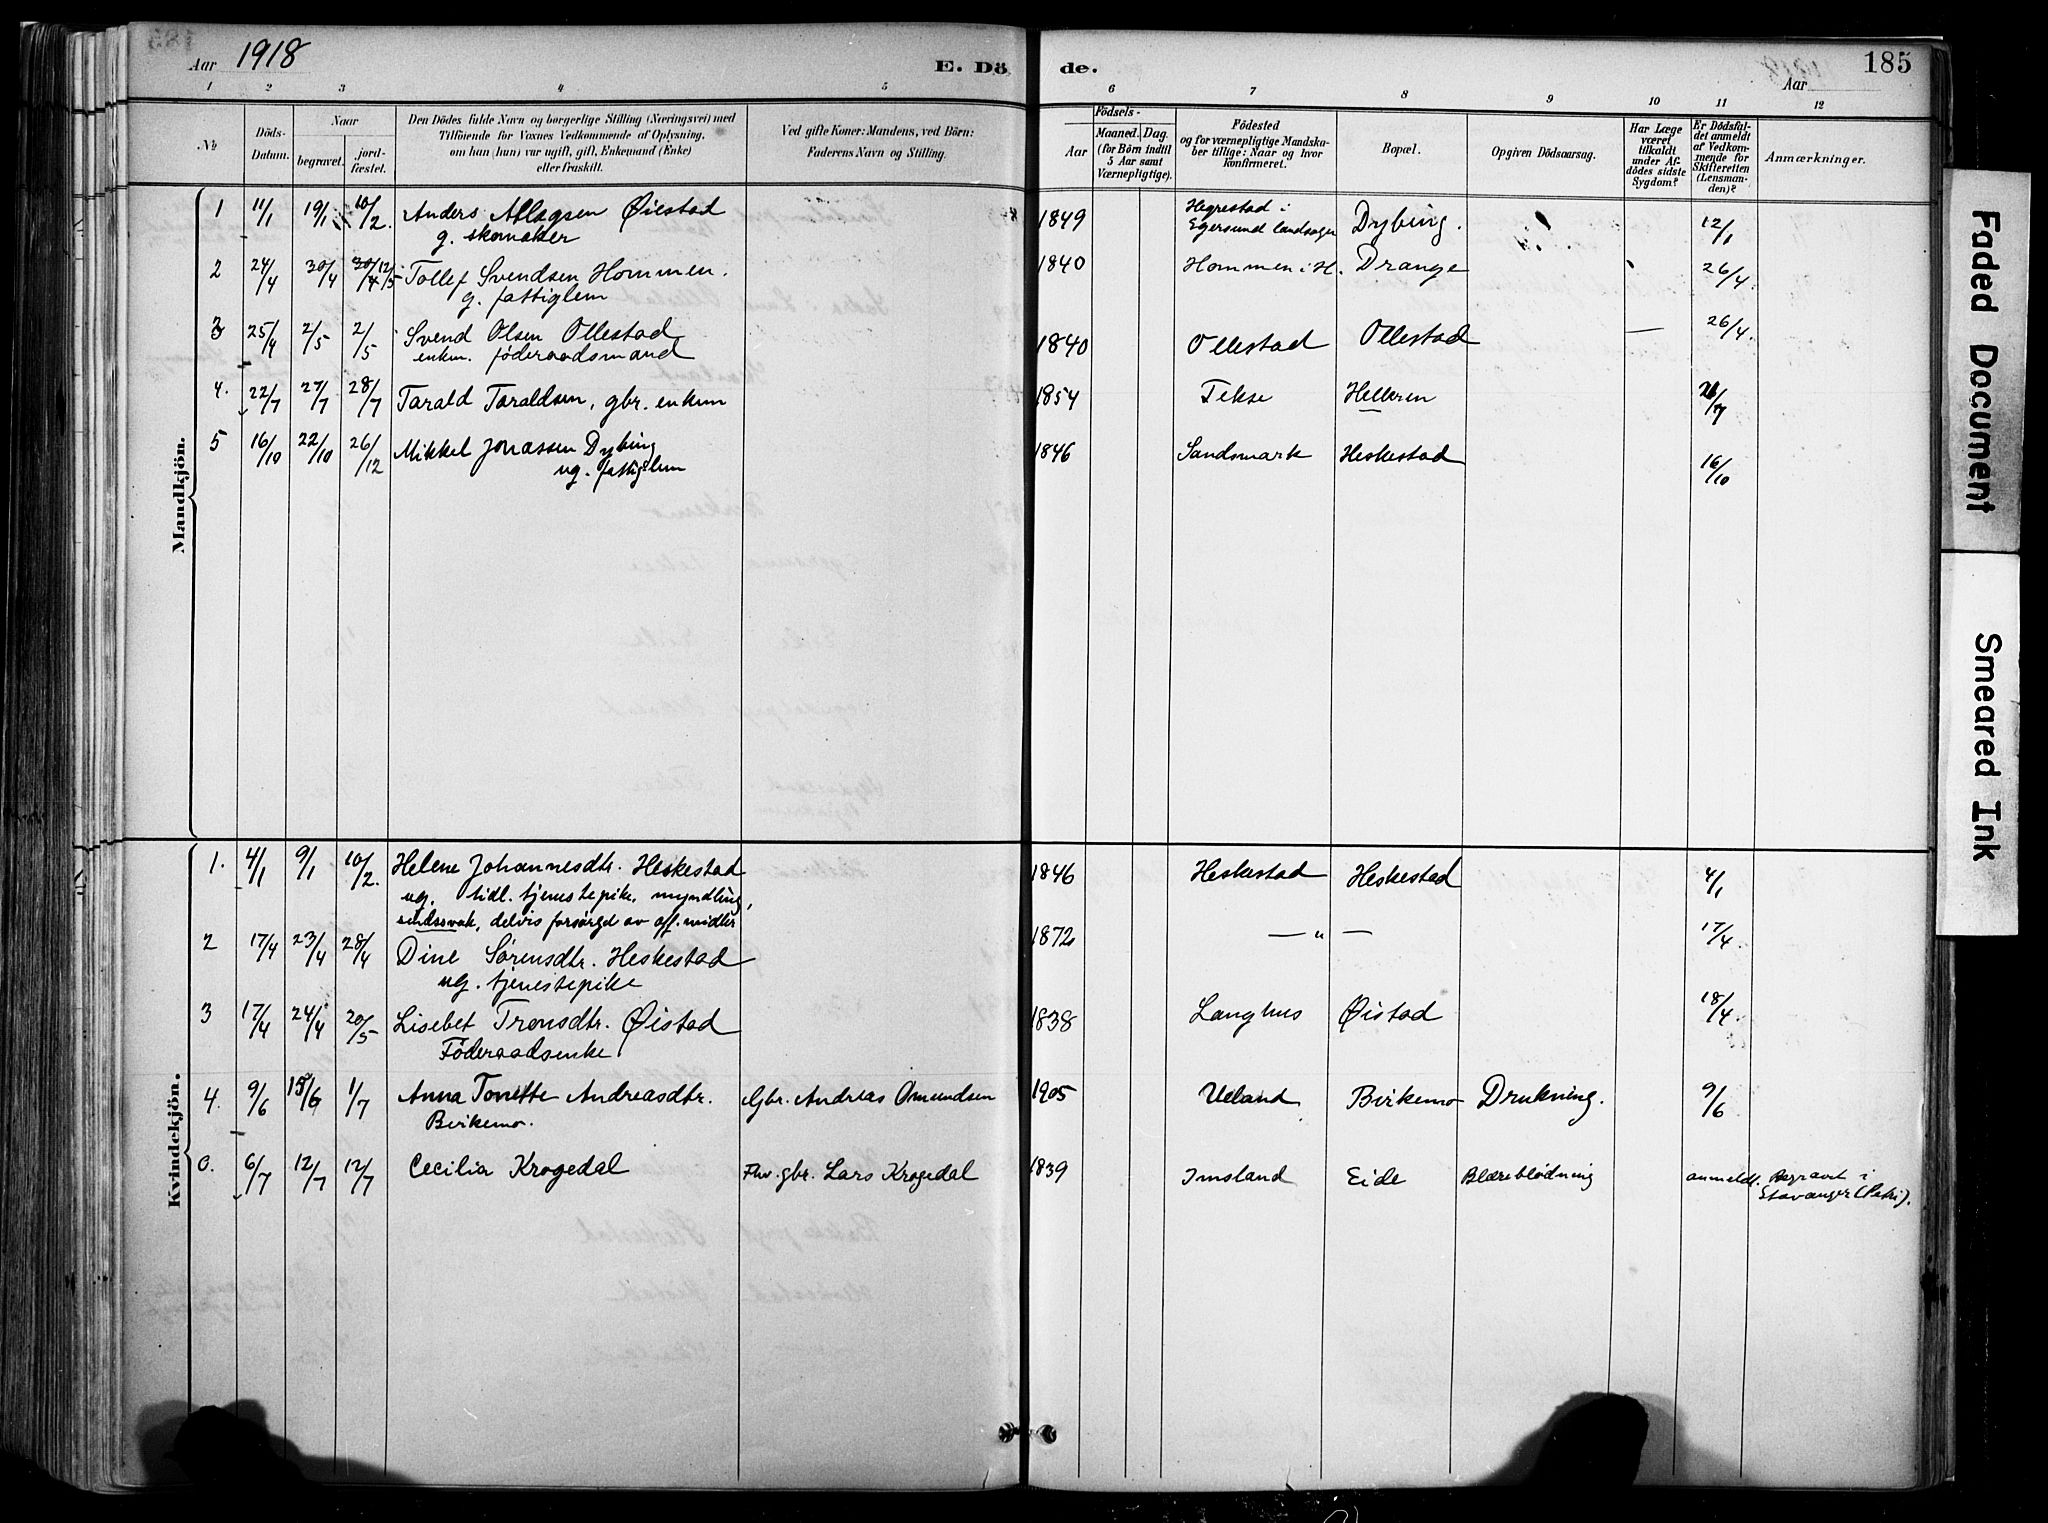 Aar 1918
E. Dö de.
185
Aar
1 2 3 4 5 6 7 8 9 10 11 12
№
Döds-
Datum.
Naar
begravet.
jord-
fæstet.
Den Dödes fulde Navn og borgerlige Stilling (Næringsvei) med
Tilföiende for Voxnes Vedkommende af Oplysning,
om han (hun) var ugift, gift, Enkemand (Enke)
eller fraskilt.
Ved gifte Koner: Mandens, ved Börn:
Faderens Navn og Stilling.
Födsels-
Aar
Maaned. Dag.
(for Börn indtil
5 Aar samt
Værnepligtige).
Födested
og for værnepligtige Mandska-
ber tillige: Naar og hvor
konfirmeret.
Bopæl.
Opgiven Dödsaarsag.
Har Læge
været
tilkaldt
under Af-
dödes sidste
Sygdom?
Er Dödsfal-
det anmeldt
af Vedkom-
mende for
Skifteretten
(Lensman-
den)?
Anmærkninger.
Mandkjön.
1 11/1 19/1 10/2. Anders Aslagsen Øiestad 1849 Hegrestad i Dybing. 12/1
g. skomaker Egersund landsogn
2 24/4 30/4 30/4 12/5 Tollef Svendsen Hommen. 1840 Hommen i H. Drange 26/4.
g. fattiglem
3 25/4 2/5 2/5 Svend Olsen Ollestad 1840 Ollestad Ollestad — 26/4.
enkm. føderaadsmand
4. 22/7 27/7 28/7 Tarald Taraldsen, gbr. enkem 1854 Tekse Helleren 26/7
5 16/10 22/10 26/12 Mikkel Jonassen Dybing 1846 Sandsmark Heskestad 16/10
ug. fattiglem
Kvindekjön.
1. 4/1 9/1 10/2. Helene Johannesdtr. Heskestad 1846 Heskestad Heskestad 4/1
ug. tidl. tjenestepike, myndling,
sindssvak, delvis forsørgd av off. midler
2 17/4 23/4 28/4 Dine Sørensdtr. Heskestad 1872 — " — 17/4.
ug. tjenestepike
3 17/4 24/4 20/5 Lisebet Tronsdtr. Øistad 1838 Langhus Øistad 18/4.
Føderaadsenke
4. 9/6 15/6 1/7 Anna Tonette Andreasdtr. Gbr. Andreas Omundsen 1905 Ueland Birkemo Drukning. 9/6
Birkemo.
0. 6/7 12/7 12/7 Cecilia Krogedal Fhv. gbr. Lars Krogedal 1839 Imsland Eide Blæreblødning anmeldt. Begravet i
Stavanger (Petri).
Faded Document
Smeared Ink